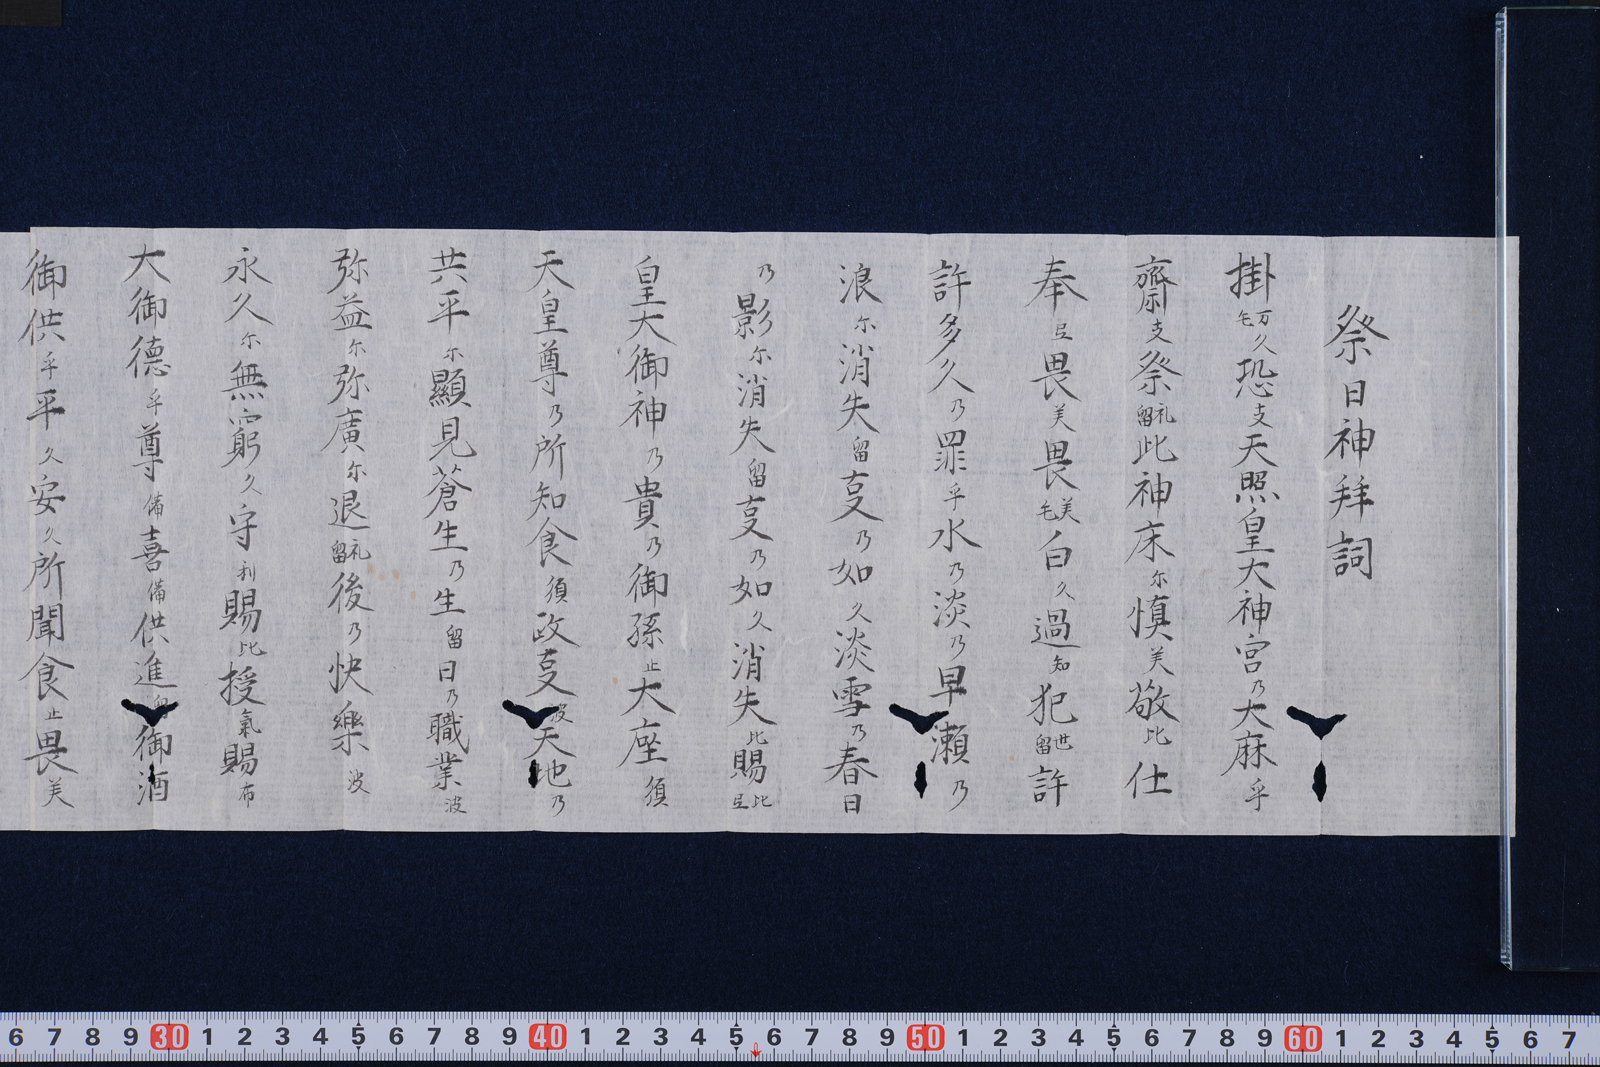 祭日神拜詞
掛万毛久恐支天照皇大神宮乃大麻乎
齋支祭礼留此神床尓慎美敬比仕
奉弖畏美畏美毛白久過知犯世留許
許多久乃罪乎水乃淡乃早瀬乃
浪尓消失留㕝乃如久淡雪乃春日
乃影尓消失留㕝乃如久消失比賜比弖
皇大御神乃貴乃御孫止大座須
天皇尊乃所知食須政㕝波天地乃
共平尓顯見蒼生乃生留日乃職業波
弥益尓弥廣尓退礼留後乃快樂波
永久尓無窮久守利賜比授氣賜布
大御德乎尊備喜備供進御酒
御供乎平久安久所聞食止畏美
6 7 8 9 30 1 2 3 4 5 6 7 8 9 40 1 2 3 4 5 6 7 8 9 50 1 2 3 4 5 6 7 8 9 60 1 2 3 4 5 6 7